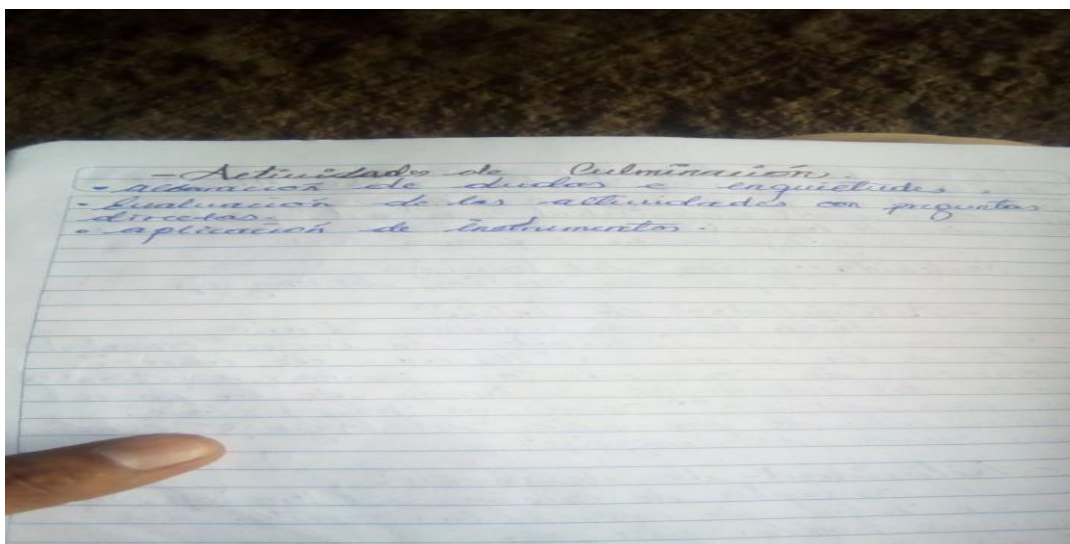 - Actividades de Culminación.
- aclaración de dudas e enquietudes.
- Evaluación de las actividades con preguntas
directas.
- aplicación de instrumentos.